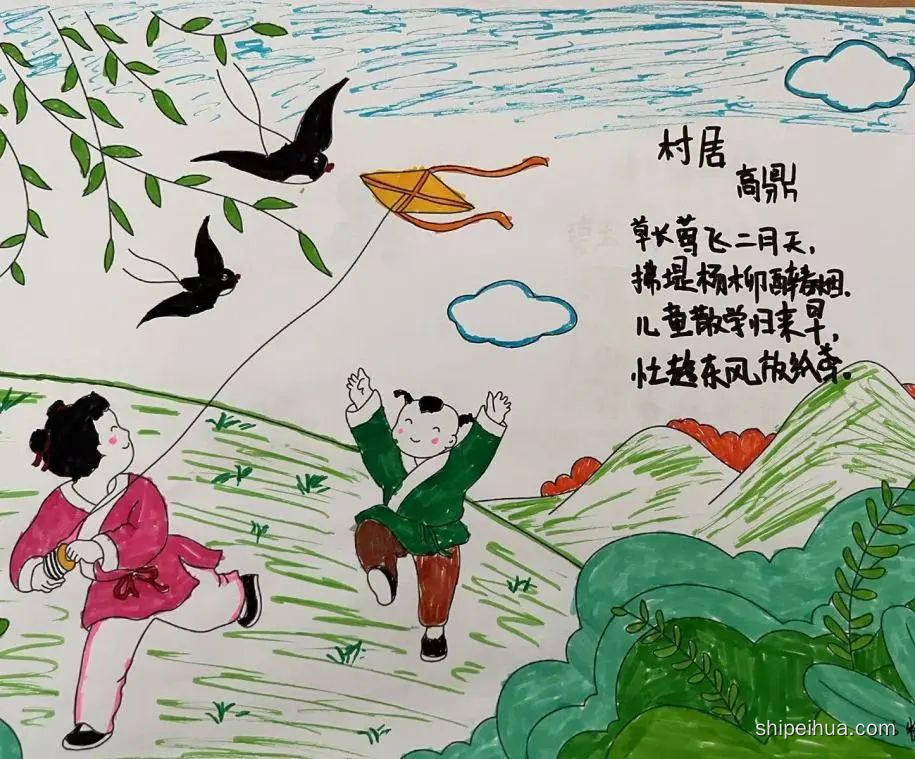 村居
高鼎
草长莺飞二月天,
拂堤杨柳醉春烟.
儿童散学归来早,
忙趁东风放纸鸢。
shipeihua.com